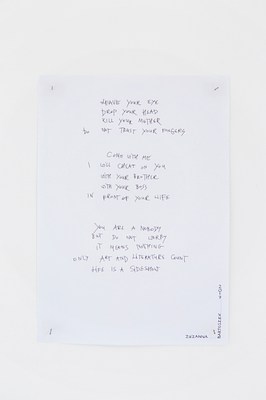 YOUR EYE
DROP YOUR HEAD
KILL YOUR MOTHER
DO NOT TRUST YOUR FINGERS
COME WITH ME
I WILL CHEAT ON YOU
WITH YOUR BROTHER
WITH YOUR BOSS
IN FRONT OF YOUR WIFE
YOU ARE A NOBODY
BUT DO NOT WORRY
IT MEANS NOTHING
ONLY ART AND LITERATURE COUNT
LIFE IS A SIDESHOW
ZUZANNA
BARTOSZEK